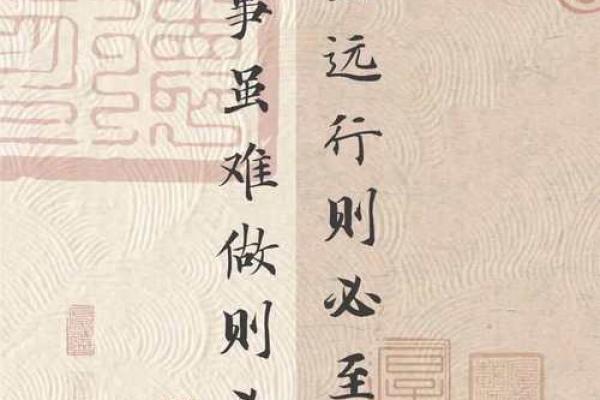 远行则必至
事虽难做则